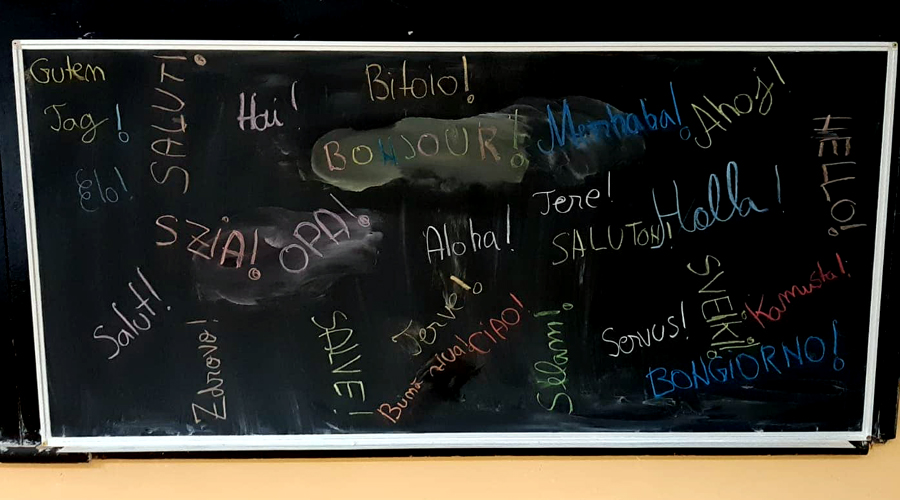 Guten
Tag!
SALUT!
Hai!
Bitoio!
BONJOUR!
Merrhaba!
Ahoj!
HELLO!
Elo!
Jere!
Holla!
SZiA!
OPA!
Aloha!
SALUTON!
Salut!
Zdravo!
SALVE!
Terve!
Buna-ziua!
CiAO!
Selam!
Servus!
SVEIKI!
Kamusta!
BONGiORNO!